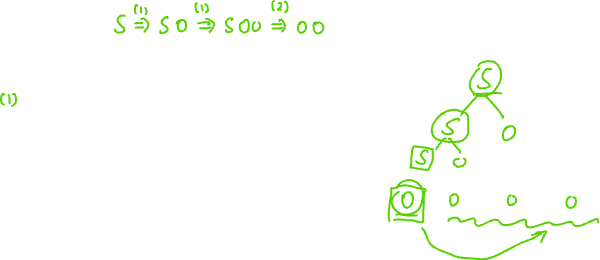 S ⇒(1) S0 ⇒(1) S00 ⇒(2) 00
S
(1)
S 0
S 0
0 0 0 0